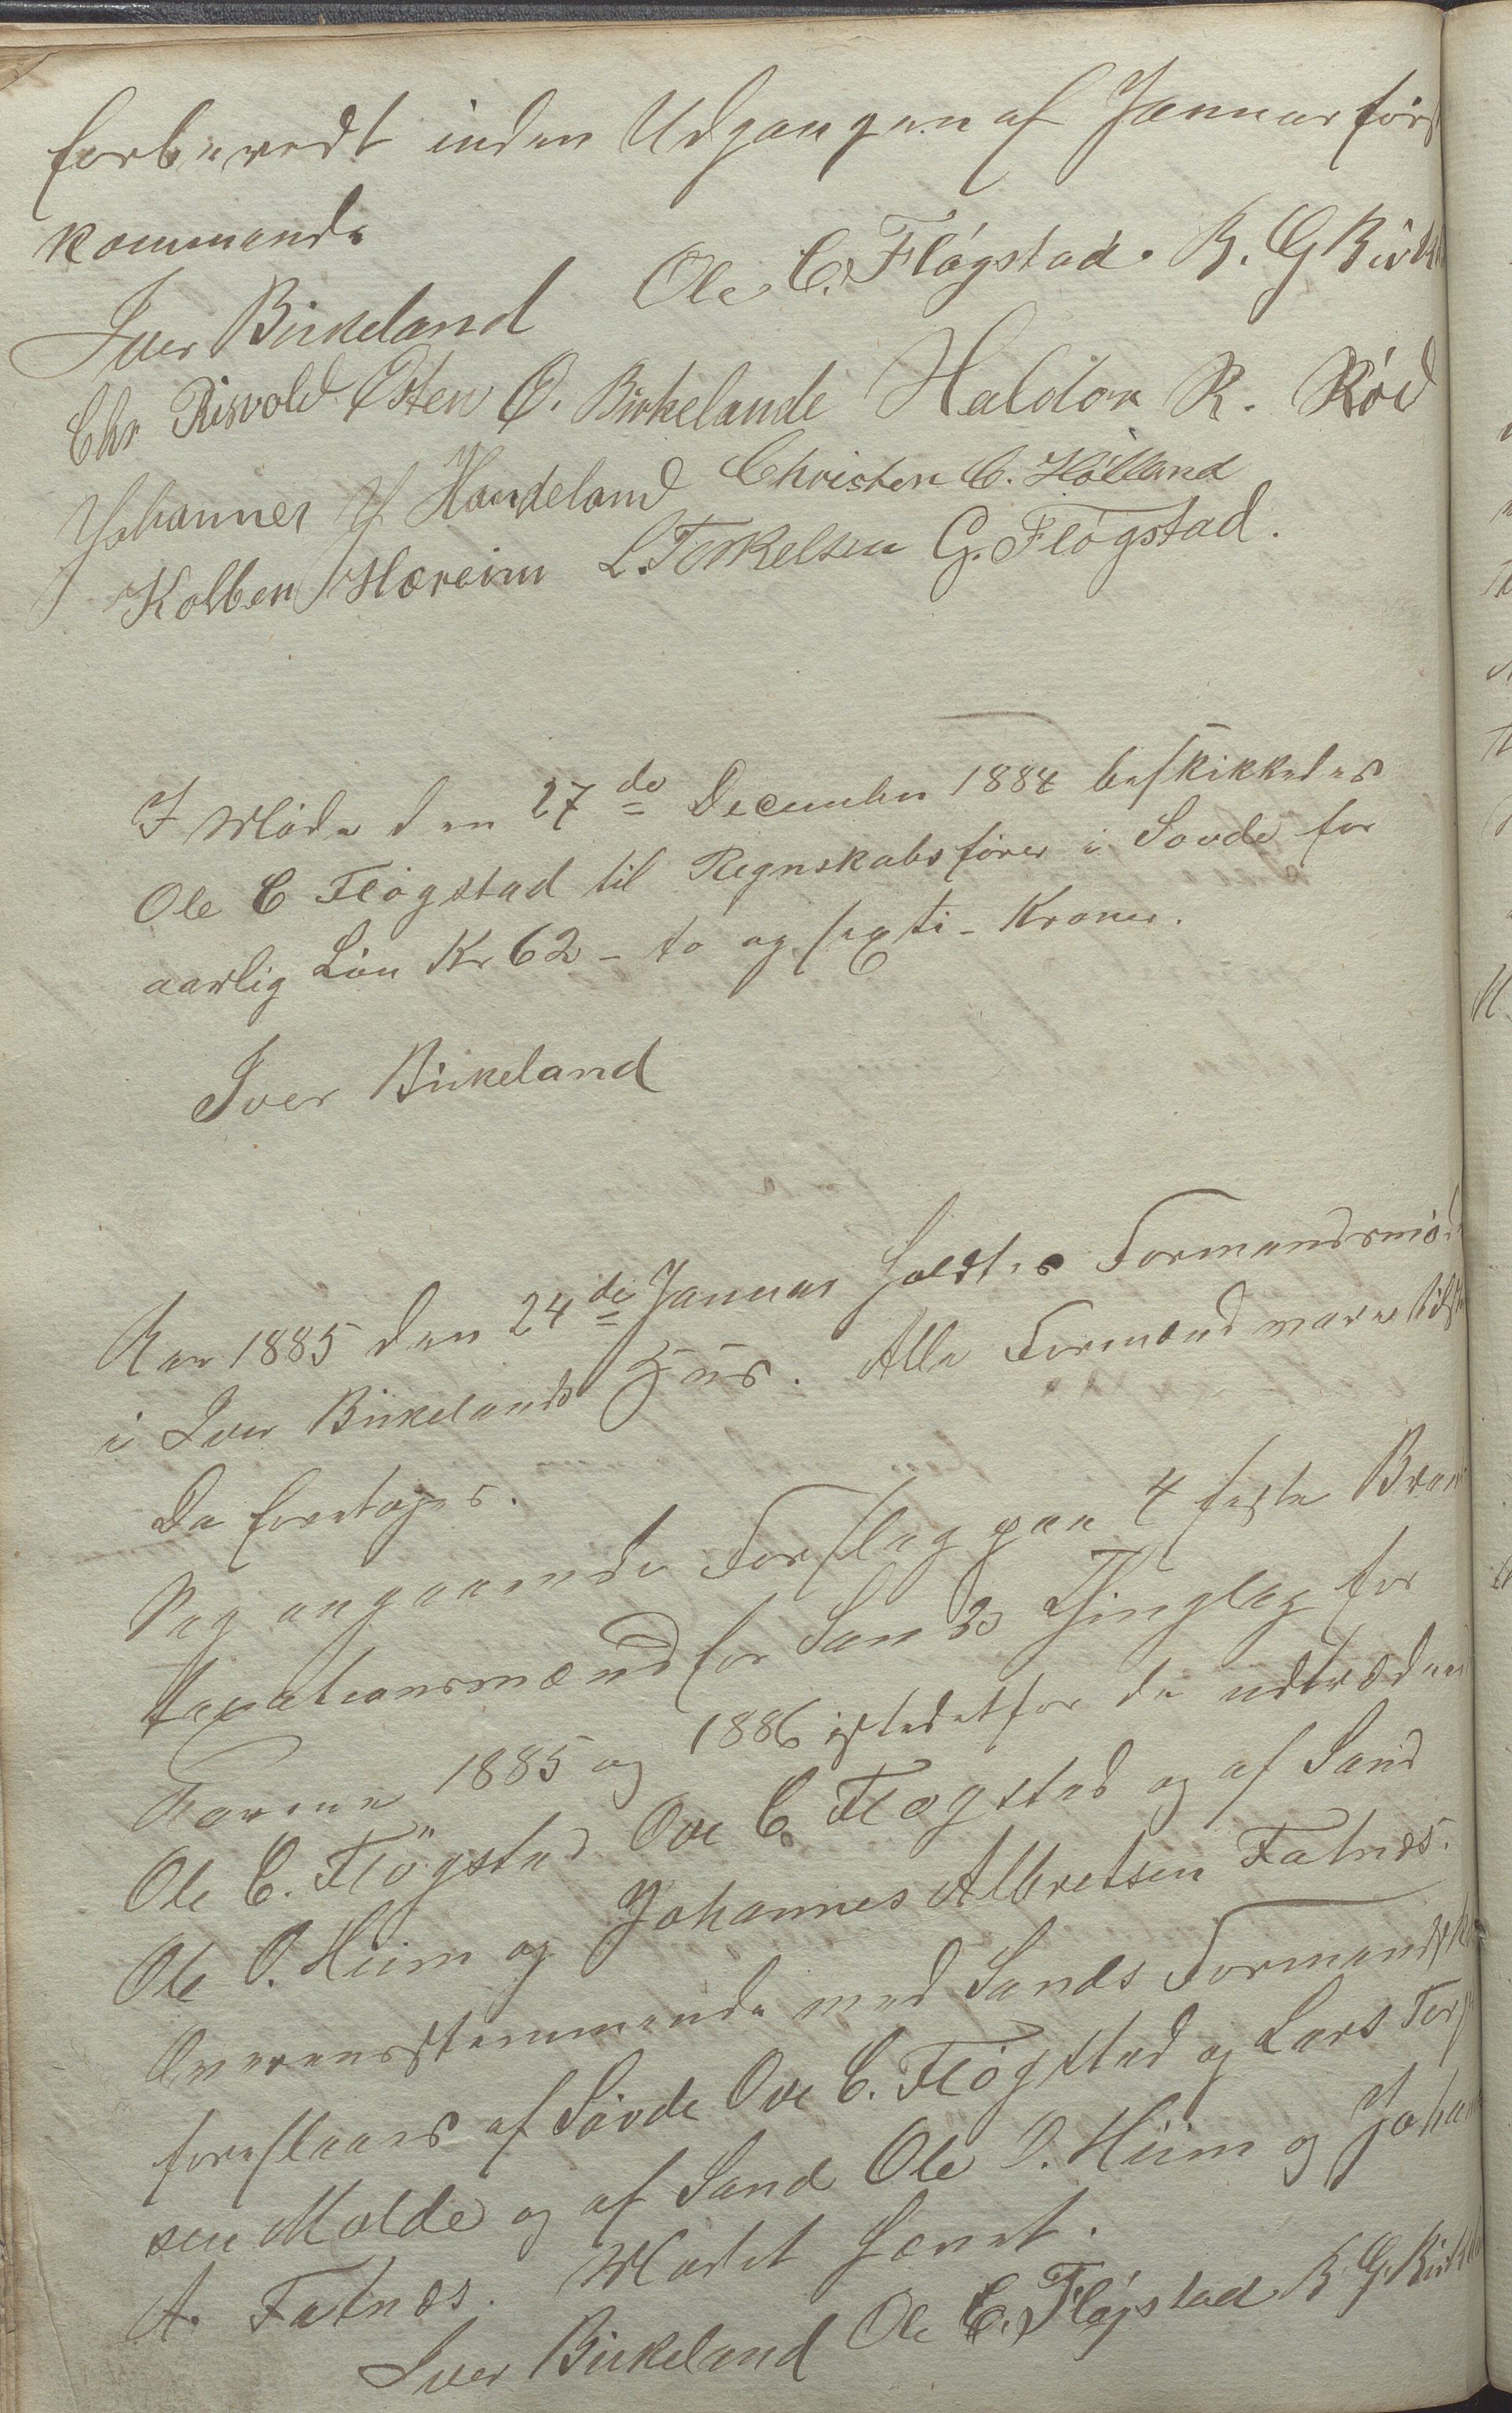 forberedt inden Udgangen af Januar først
kommende
Iver Birkeland Ole C. Fløgstad. B. G Birke
Chr Risvold Osten O. Birkelande Haldor R. Röd
Johannes J Handeland Christen C. Hålland
Kolben Hæreim L. Terkelsen G. Fløgstad.
I Møde den 27de December 1884 beskikkedes
Ole C Fløgstad til Regnskabsfører i Sovde for
aarlig Løn Kr 62 - to og sexti - Kroner.
Iver Birkeland
Aar 1885 den 24de Januar holdtes Formandsmød
i Iver Birkelands Hus. Alle Formænd vare tilste
Da foretoges.
Sag angaaende Forslag paa 4 faste Bran
taxationsmænd for Sands Thinglag for
Aarene 1885 og 1886 istedetfor de udtrædend
Ole C. Flögstad Ove C. Fløgstad og af Sand
Ole O. Hiim og Johannes Albretsen Fatnæs.
Overensstemmende med Sands Formandska
foreslaaes af Søvde Ove C. Fløgstad og Lars Torj
sen Molde og af Sand Ole O. Hiim og Johan
A. Fatnæs. Mødet hævet.
Iver Birkeland Ole C. Fløgstad B G. Birkel